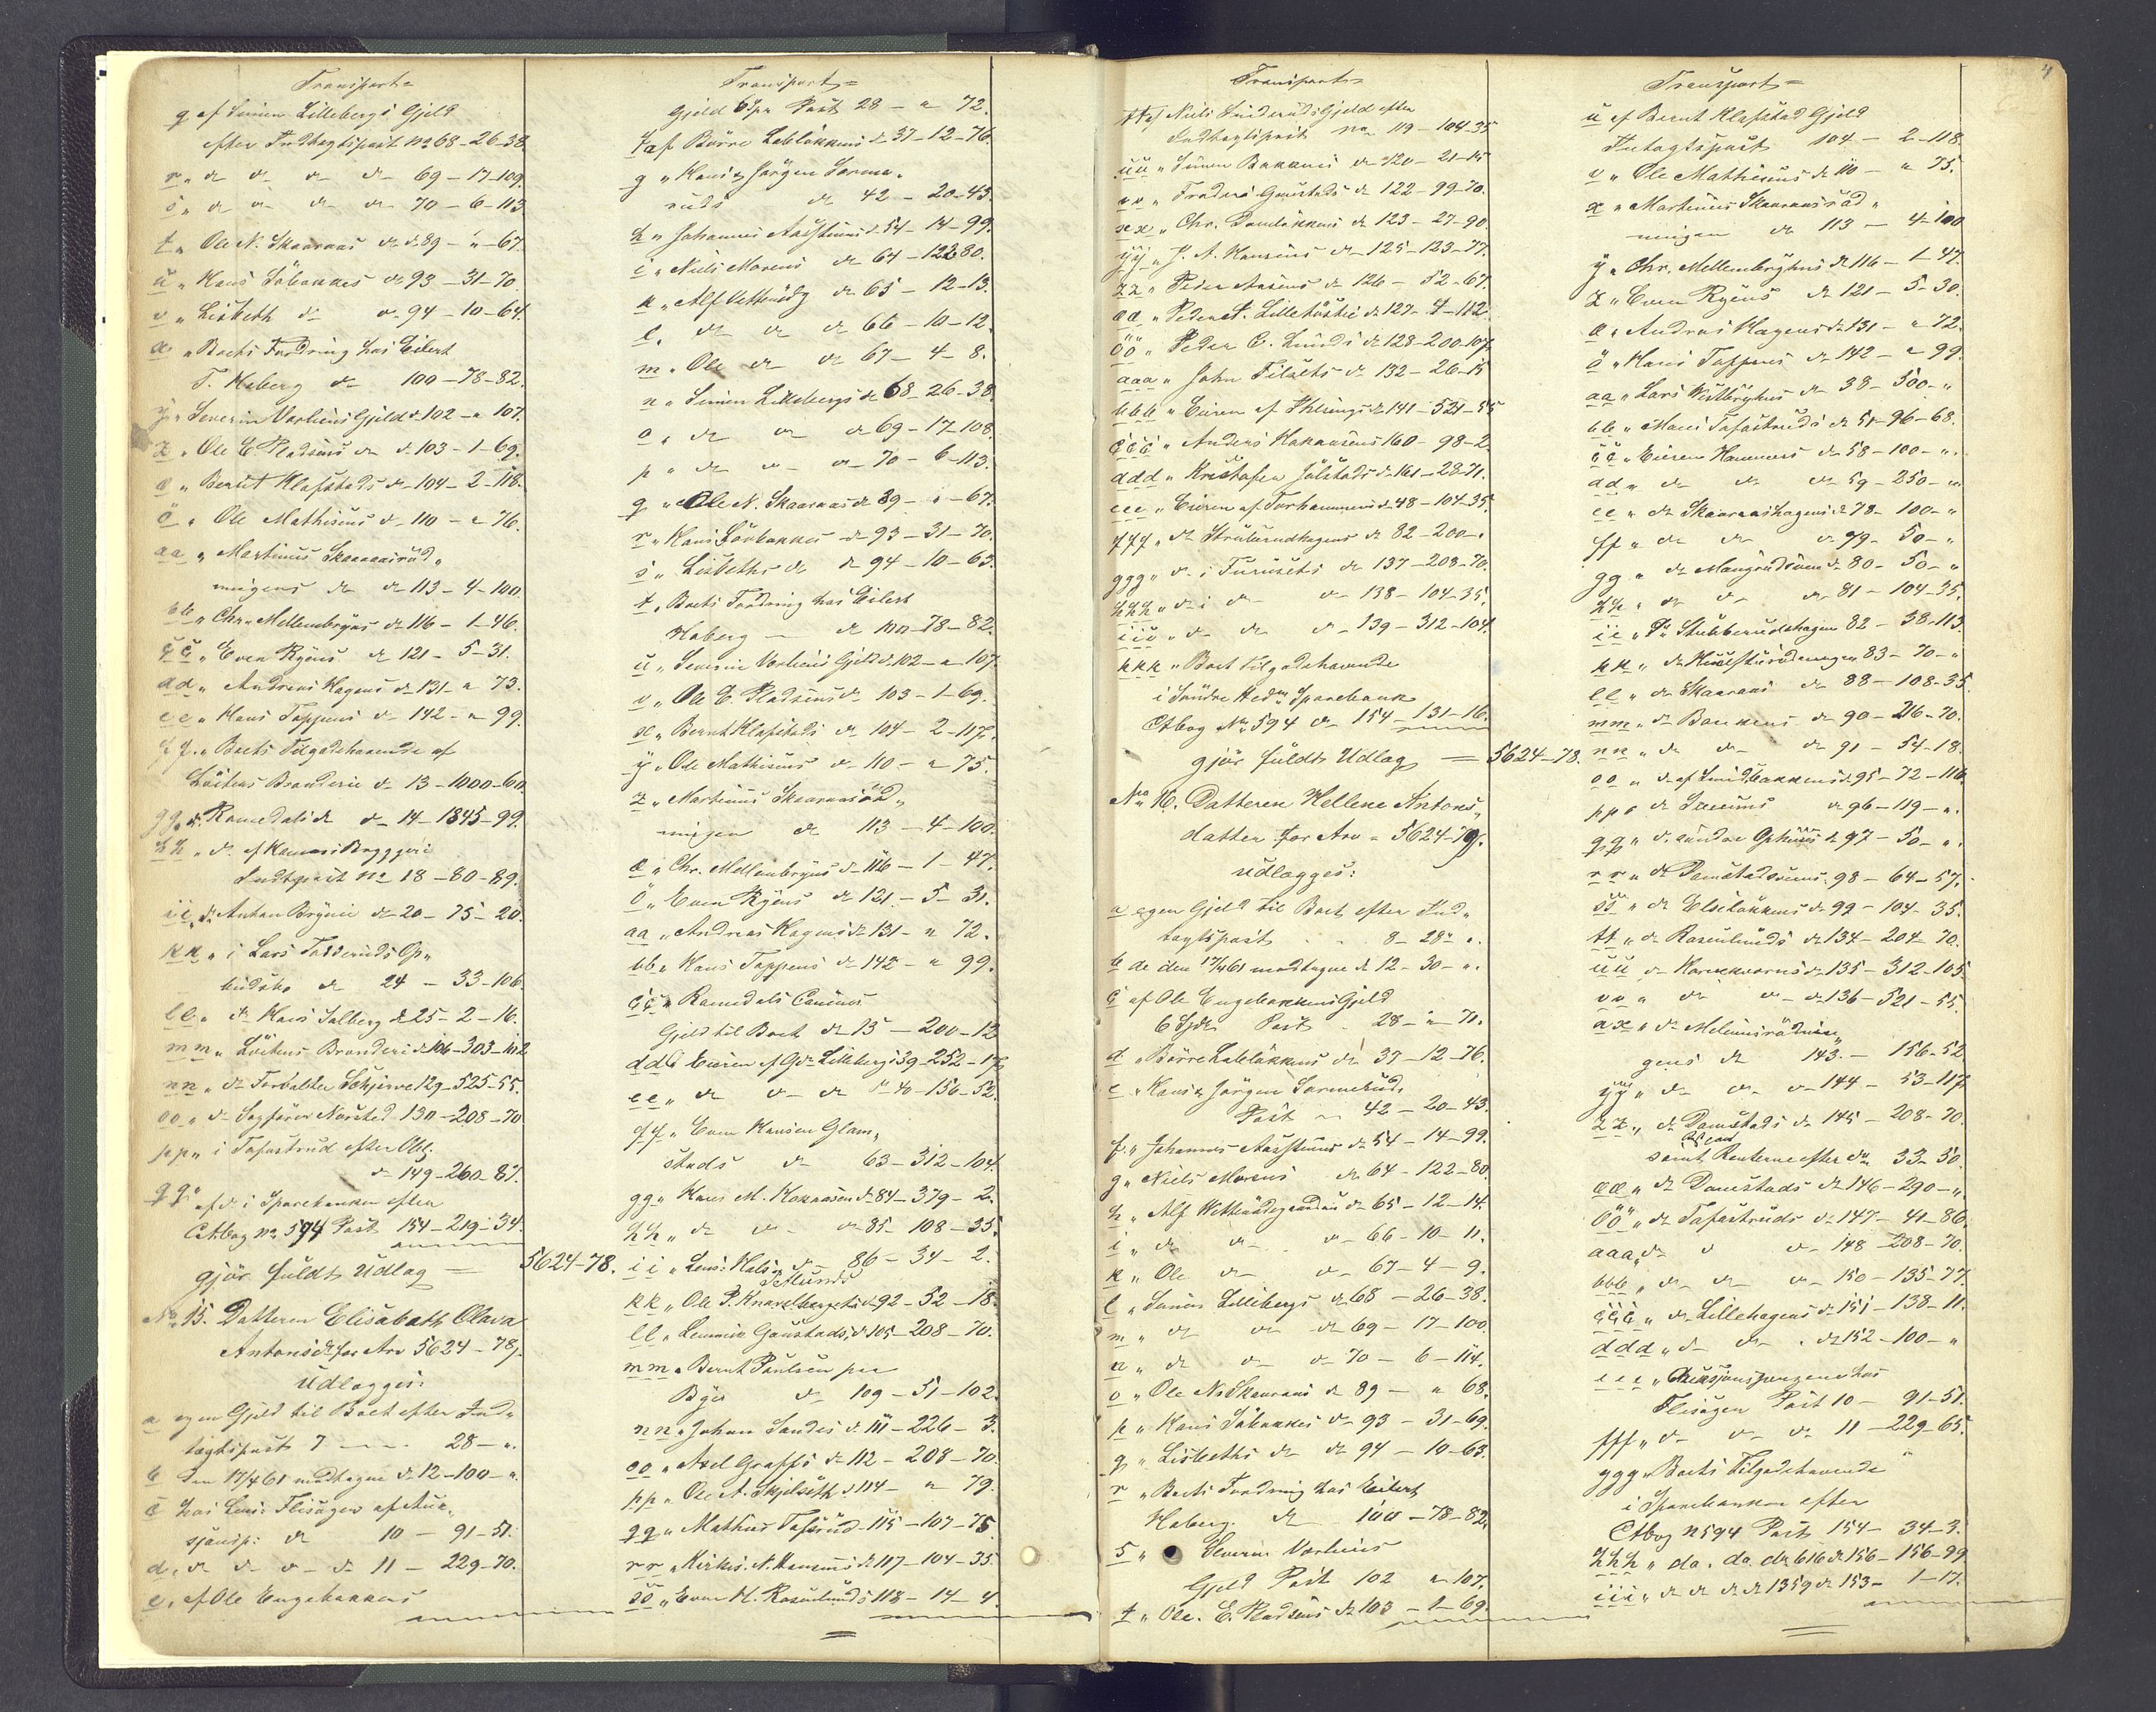 Transport=
q af Simen Lillebergs Gjeld
efter Indtægtspost No 68-26-38.
r „ do do do do 69-17-109.
s „ do do do do 70-6-113
t „ Ole N. Skaaraas do do 89-„-67.
u „ Hans Söbakkes do 93-31-70.
v „ Lisbeth do do 94-10-64.
x „ Boets Fordring hos Eilert
T. Haberg do 100-78-82.
y „ Severin Vorliens Gjeld do 102-„ 107.
z „ Ole E. Pladsens do do 103-1-69.
æ „ Bernt Klafstads do 104-2-118.
ö „ Ole Mathisens do 110-„ 76.
aa „ Martinus Skaaraasrud„
ningens do do 113-4-100.
bb „ Chr. Mellembyens do 116-1-46.
cc „ Even Ryens do 121-5-31.
dd „ Andreas Hagens do 131-„ 73.
ee „ Hans Toppens do 142-„ 99.
ff „ Boets Tilgodehavende af
Löitens Brænderie do 13-1000-60.
gg „ do Ramsdals do do 14-1845-99.
hh „ do af Hamars Bryggeri
Indtgpost No 18-80-89.
ii „ do Anton Bryni do 20-75-20.
kk „ i Lars
do 24-33-106.
ll „ do Hans Salberg do 25-2-16.
mm „ Löitens Brænderi do 106-303-102
nn „ do Schjerve 129-525-55.
oo „ do Sagförer Norsted 130-208-70
pp „ i Tofastrud efter Obl.
do 149-260-87.
qq „ af do i Sparebanken efter
Ctbog No 594 Post 154-219-34.
gjör fuldt Udlæg = 5624-78.
No 15. Datteren Elisabeth Olava
Antonsdr for Arv 5624-78.
udlægges:
a egen Gjeld til Boet efter Ind„
tægtspost 7 28-„.
b den 17/4 61 modtagne do 12-100-„.
c hos Lens: Flisagen af Auk„
sjonsp: do 10-91-51.
d „ do do do do 11-229-70.
e „ af Ole Engebakkens
Transport=
Gjeld 6 Spr Post 28-„ 72.
f af Börre Lablökkens do 37-12-76.
g „ Hans & Jörgen Sorme„
ruds do 42-20-43.
h „ Johannes Aasstuens do 54-14-99.
i „ Niels Morens do 64-122-80.
k „ Alf do 65-12-13.
l „ do do do 66-10-12.
m „ Ole do do 67-4-8.
n „ Simen Lillebergs do 68-26-38.
o „ do do do 69-17-108.
p „ do do do 70-6-113.
q „ Ole N. Skaaraas do 89-„-67.
r „ Hans Söbakkes do 93-31-70.
s „ Lisbeths do do 94-10-63.
t „ Boets Fordring hos Eilert
Haberg do 100-78-82.
u „ Severin Vorliens Gjeld do 102-„ 107.
v „ Ole E. Pladsens do 103-1-69.
x „ Bernt Klafstads do 104-2-117.
y „ Ole Mathisens do 110-„ 75.
z „ Martinus Skaaraasrud„
ningen do 113-4-100.
æ „ Chr. Mellembyens do 116-1-47.
ö „ Even Ryens do 121-5-31.
aa „ Andreas Hagens do 131-„ 72.
bb „ Hans Toppens do 142-„ 99.
cc „ Ramsdals
Gjeld til Boet do 15-200-12
dd „ Eieren af Gdn Lilleberg do 39-252-17.
ee „ do do do do 40-156-52.
ff „ Even Hansen Glom„
stads do 63-312-104.
gg „ Hans M. Kokaasen do 84-379-2.
hh „ do do do 85-108-35.
ii „ Lens: Hals do 86-34-2.
kk „ Ole P. do 92-52-18.
ll „ Gaustads do 105-208-70.
mm „ Bernt Poulsen
Bye do 109-51-102.
nn „ Johan Sandes do 111-226-3.
oo „ Axel Graffs do 112-208-70.
pp „ Ole A. Skjelseth do 114-„ 79.
qq „ Mathias Tofsrud 115-107-75.
rr „ N. Hansens do 117-104-35.
ss „ Even H. Rosenlunds 118-14-4.
Transport=
tt af Niels Gjeld efter
Indtægtspost No 119-104-35
uu „ Simen Bakkens do 120-21-15
vv „ Gaustads do 122-99-70.
xx „ Chr. Damlökkens do 123-27-90.
yy „ J. A. Hansens do 125-123-77.
zz „ Peder Aasens do 126-52-67.
ææ „ Peder A. do 127-4-112.
öö „ Peder C. Lunds do 128-200-107.
aaa „ John Filsets do 132-26-15
bbb „ Eieren af do 141-521-55
ccc „ Anders Kokaasens 160-98-2.
ddd „ Kristofer Jölstads do 161-28-71.
eee „ Eieren af Torhammeren do 48-104-35.
fff „ do Strüberudhagens do 82-200-„
ggg „ do i Furusets do 137-208-70.
hhh „ do i do do 138-104-35.
iii „ do do do 139-312-104.
kkk „ Boet tilgodehavende
i Söndre Hedms Sparebank
Ctbog No 594 do 154-131-16.
gjör fuldt Udlæg = 5624-78.
No 16. Datteren Hellene Antons„
datter for Arv = 5624-78.
udlægges:
a egen Gjeld til Boet efter Ind„
tægtspost 8-28-„.
b de den 17/4 61 modtagne do 12-30-„.
c af Ole Engebakkens Gjeld
6 Spdr Post 28-„ 71.
d „ Börre Lablökkens do 37-12-76.
e „ Hans & Jörgen Sormeruds
Post 42-20-43.
f „ Johannes Aasstuens do 54-14-99.
g „ Niels Morens do 64-122-80.
h „ Alf do 65-12-14.
i „ do do do 66-10-11.
k „ Ole do do 67-4-9.
l „ Simen Lillebergs do 68-26-38.
m „ do do do 69-17-100.
n „ do do do 70-6-114.
o „ Ole Ns Skaaraas do 89-„ 68.
p „ Hans Söbakkes do 93-31-69.
q „ Lisbeths do do 94-10-63.
r „ Boets Fordring hos Eilert
Haberg do 100-78-82.
s „ Severin Vorliens
Gjeld Post 102 „ 107.
t „ Ole E. Pladsens do 103-1-69.
4
Transport=
u af Bernt Klafstad Gjeld
Indtægtspost 104-2-118.
v „ Ole Mathisens do 110-„ 75.
x „ Martinus Skaaraasrud„
ningen do 113-4-100
y „ Chr. Mellembyens do 116-1-47.
z „ Even Ryens do 121-5-30.
æ „ Andreas Hagens do 131-„ 72.
ö „ Hans Toppens do 142-„ 99.
aa „ Lars do 38-500-„
bb „ Hans Tofastruds do 51-96-68.
cc „ Eieren Hammers do 58-100-„.
dd „ do do do 59-250-„
ee „ do Skaaraashagens do 78-100-„
ff „ do do do 79-50-„
gg „ do do 80-50-„
hh „ do do do 81-104-35.
ii „ do Stubberudshagen 82-38-113.
kk „ do 83-70-„
ll „ do Skaaraas do 88-108-35.
mm „ do Bakkens do 90-216-70.
nn „ do do do 91-54-18.
oo „ do af Smidsbakkens do 95-72-116.
pp „ do do 96-119-„.
qq „ do söndre Ophuus do 97-50-„.
rr „ do 98-64-57.
ss „ do Elselökkens do 99-104-35.
tt „ do Rosenlunds do 134-204-70.
uu „ do do 135-312-105.
vv „ do do do 136-521-55.
xx „ do
gens do 143-156-52.
yy „ do do do 144-53-117.
zz „ do Domstads do 145-208-70.
samt Renterne efter do 33-50.
ææ „ do Domstads do 146-290-„.
öö „ do Tofastruds do 147-41-86.
aaa „ do do do 148-208-70.
bbb „ do do do 150-135-77.
ccc „ do Lillehagens do 151-138-11.
ddd „ do do do 152-100-„
eee „ Auksjonspengene hos
Flisagen Post 10-91-51.
fff „ do do do 11-229-65.
ggg „ Boets Tilgodehavende
i Sparebanken efter
Ctbog No 594 Post 154-34-3.
hhh „ do. do do 616 do 156-156-99.
iii „ do do do do 1359 do 153-1-17.